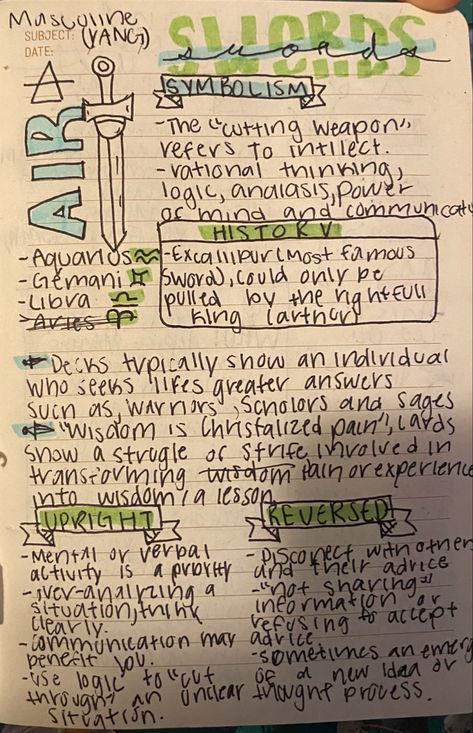 Masculine
SUBJECT: (YANG)
DATE:
SWORDS
swords
AIR
SYMBOLISM
-The "cutting weapon"
refers to intllect.
-rational thinking,
logic, analasis, power
of mind and communicati
HISTORY
-Excallipur (most famous
sword), could only be
pulled by the rightfull
king (arthur)
-Aquarius ♒
-Gemani ♊
-Libra ♎
-Aries ♈
Decks typically show an individual
who seeks lifes greater answers
such as, warriors, scholors and sages
"Wisdom is christalized pain", cards
show a strugle or strife involved in
transforming wisdom pain or experience
into wisdom/a lesson
UPRIGHT
-Mental or verbal
activity is a priority
-over-analizing a
situation, think
clearly.
-communication may
benefit you.
-use logic to "cut
through" an unclear
situation.
REVERSED
-Disconect with other
and their advice
-"not sharing"
information or
refusing to accept
advice.
-sometimes an emerg
of a new idea or
thought process.